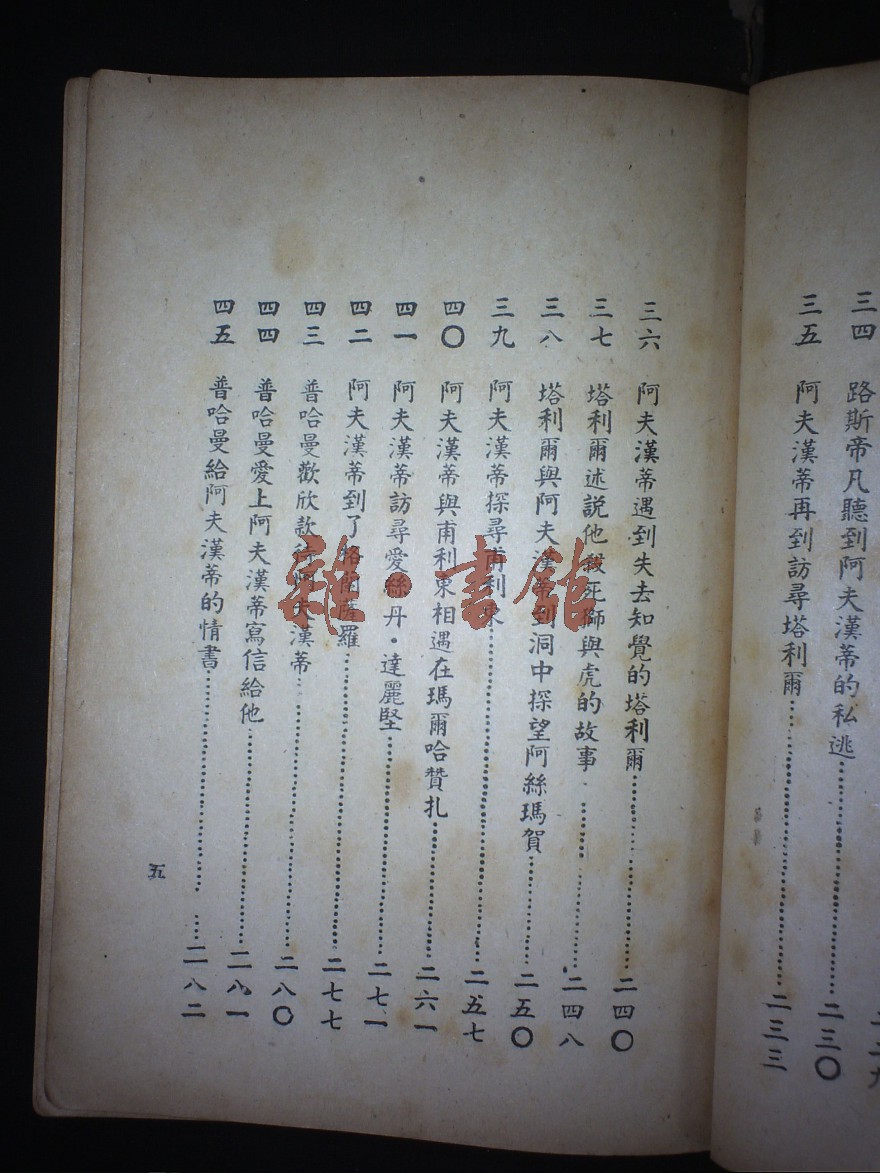 三四 路斯帝凡聽到阿夫漢蒂的私逃……二三〇
三五 阿夫漢蒂再到訪尋塔利爾……二三三
三六 阿夫漢蒂遇到失去知覺的塔利爾……二四〇
三七 塔利爾述說他殺死獅與虎的故事……二四八
三八 塔利爾與阿夫漢蒂到洞中探望阿絲瑪賀……二五〇
三九 阿夫漢蒂探尋甫利東……二五七
四〇 阿夫漢蒂與甫利東相遇在瑪爾哈贊扎……二六一
四一 阿夫漢蒂訪尋愛絲丹·達麗堅……二七一
四二 阿夫漢蒂到了格蘭薩羅……二七七
四三 普哈曼歡欣款待阿夫漢蒂……二八〇
四四 普哈曼愛上阿夫漢蒂寫信給他……二八一
四五 普哈曼給阿夫漢蒂的情書……二八二
五
雜·書館